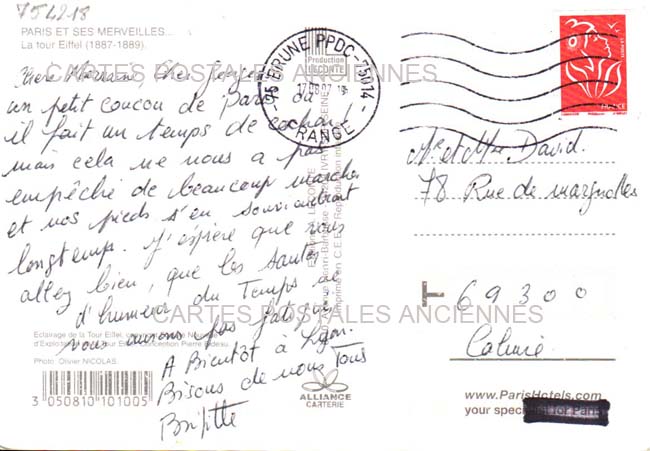 754218
PARIS ET SES MERVEILLES...
La tour Eiffel (1887-1889).
Chère Marraine Cher Jacques
un petit coucou de Paris où
il fait un temps de cochon!
mais cela ne nous a pas
empêché de beaucoup marcher
et nos pieds s'en souviendront
longtemps. J'espère que vous
allez bien, que les sautes
d'humeur du Temps ne
vous aurons pas fatigués
A Bientôt à Lyon.
Bisous de nous Tous
Brigitte
Eclairage de la Tour Eiffel,
Photo: Olivier NICOLAS.
3 050810 101005
ALLIANCE
CARTERIE
Production
LECONTE
BRUNE PPDC-75014
17 08 07
FRANCE
LA POSTE
FRANCE
Mr et Mme David.
78 Rue de margnolles
T 69300
Caluire
www.ParisHotels.com
your for Paris
CARTES POSTALES ANCIENNES
CARTES POSTALES ANCIENNES